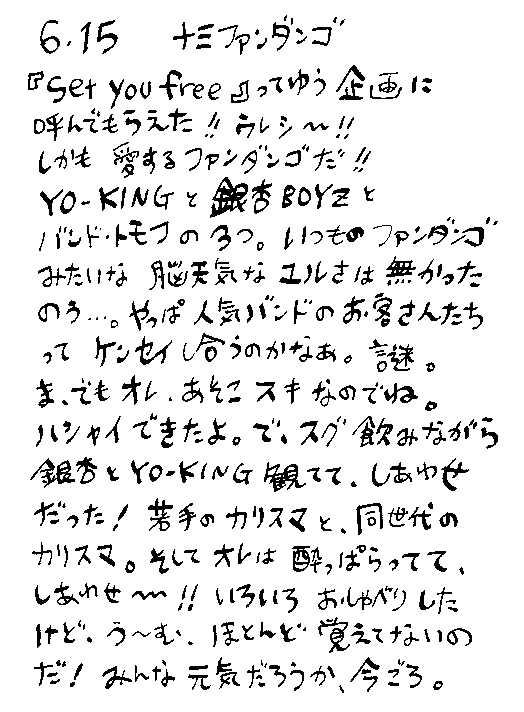 6.15 十三ファンダンゴ
『Set you free』ってゆう企画に
呼んでもらえた!!ウレシ〜!!
しかも愛するファンダンゴだ!!
YO-KINGと銀杏BOYZと
バンド・トモフの3つ。いつものファンダンゴ
みたいな脳天気なユルさは無かった
のう…。やっぱ人気バンドのお客さんたち
って ケンセイし合うのかなぁ。謎。
ま、でもオレ、あそこスキなのでね。
ハシャイできたよ。で、スグ飲みながら
銀杏とYO-KING観てて、しあわせ
だった!若手のカリスマと、同世代の
カリスマ。そしてオレは酔っぱらってて、
しあわせ〜!!いろいろおしゃべりした
けど、う〜む、ほとんど覚えてないの
だ!みんな元気だろうか、今ごろ。